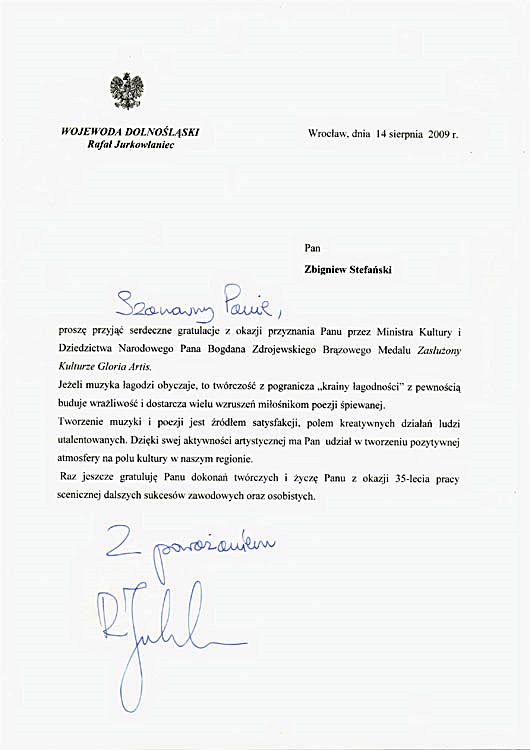 WOJEWODA DOLNOŚLĄSKI
Rafał Jurkowlaniec
Wrocław, dnia 14 sierpnia 2009 r.
Pan
Zbigniew Stefański
Szanowny Panie,
proszę przyjąć serdeczne gratulacje z okazji przyznania Panu przez Ministra Kultury i
Dziedzictwa Narodowego Pana Bogdana Zdrojewskiego Brązowego Medalu Zasłużony
Kulturze Gloria Artis.
Jeżeli muzyka łagodzi obyczaje, to twórczość z pogranicza „krainy łagodności” z pewnością
buduje wrażliwość i dostarcza wielu wzruszeń miłośnikom poezji śpiewanej.
Tworzenie muzyki i poezji jest źródłem satysfakcji, polem kreatywnych działań ludzi
utalentowanych. Dzięki swej aktywności artystycznej ma Pan udział w tworzeniu pozytywnej
atmosfery na polu kultury w naszym regionie.
Raz jeszcze gratuluję Panu dokonań twórczych i życzę Panu z okazji 35-lecia pracy
scenicznej dalszych sukcesów zawodowych oraz osobistych.
Z poważaniem